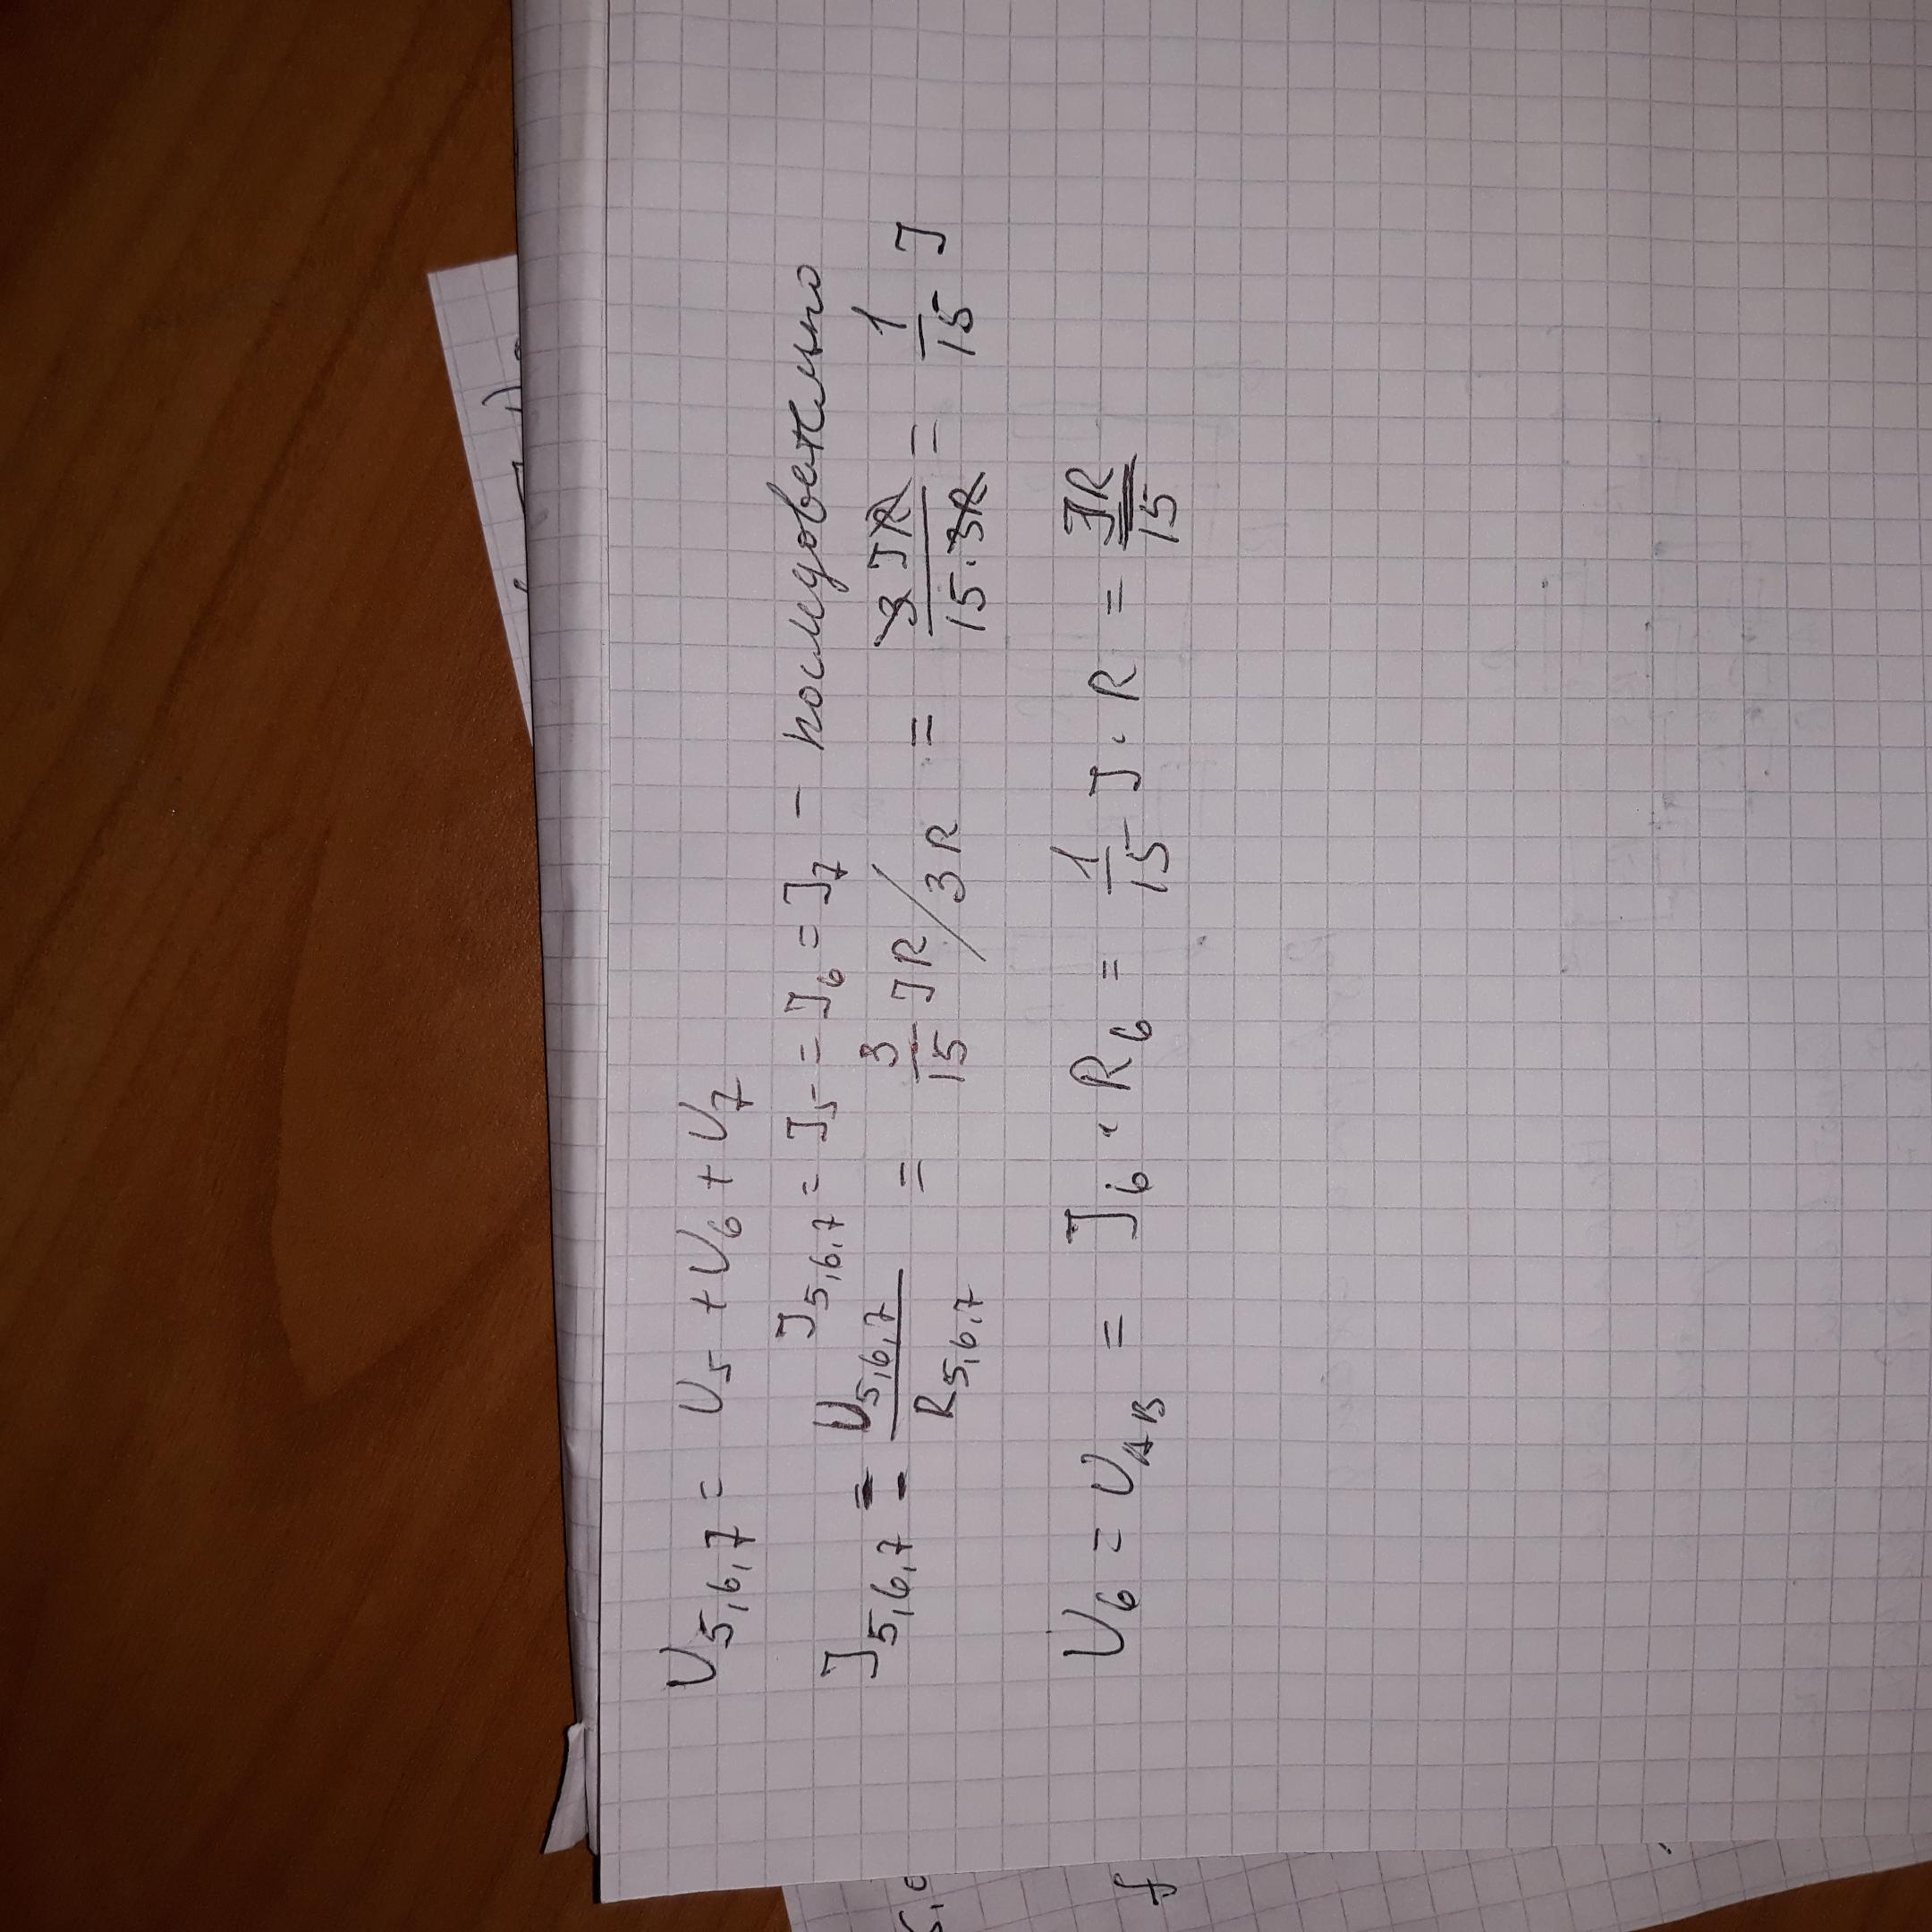 U5,6,7 = U5 + U6 + U7
J5,6,7 = J5 = J6 = J7 - последовательно
J5,6,7 = U5,6,7 / R5,6,7 = 3/15 JR / 3R = 3JR / 15·3R = 1/15 J
U6 = UAB = J6 · R6 = 1/15 J · R = JR/15